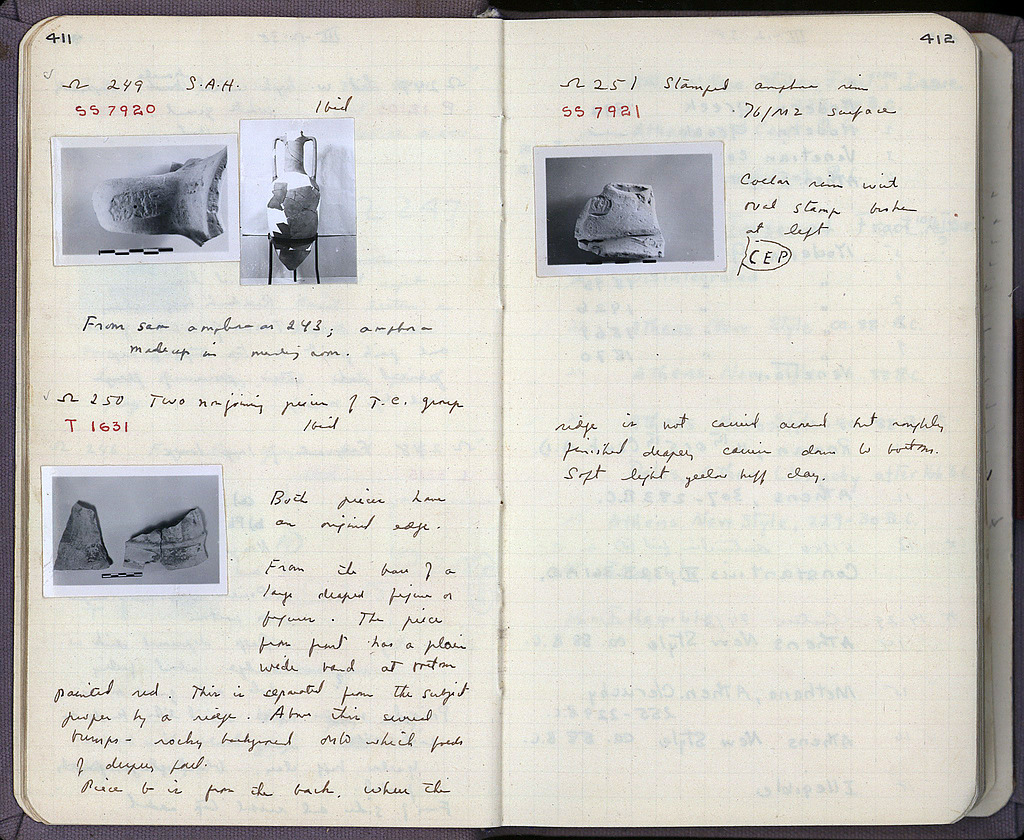 411
Ω 249 S.A.H.
SS 7920 Ibid
From same amphora as 243; amphora
made up in mending room.
Ω 250 Two nonjoining pieces of T.C. group
T 1631 Ibid
Both pieces have
an original edge.
From the base of a
large draped figure or
figures. The piece
from front has a plain
wide band at bottom
painted red. This is separated from the subject
proper by a ridge. Above this several
bumps - rocky background onto which folds
of drapery fall.
Piece b is from the back, where the
412
Ω 251 Stamped amphora rim
SS 7921 76/ΜΖ surface
Collar rim with
oval stamp broken
at left
CEP
ridge is not carried around but roughly
finished drapery carries down to bottom.
Soft light yellow buff clay.